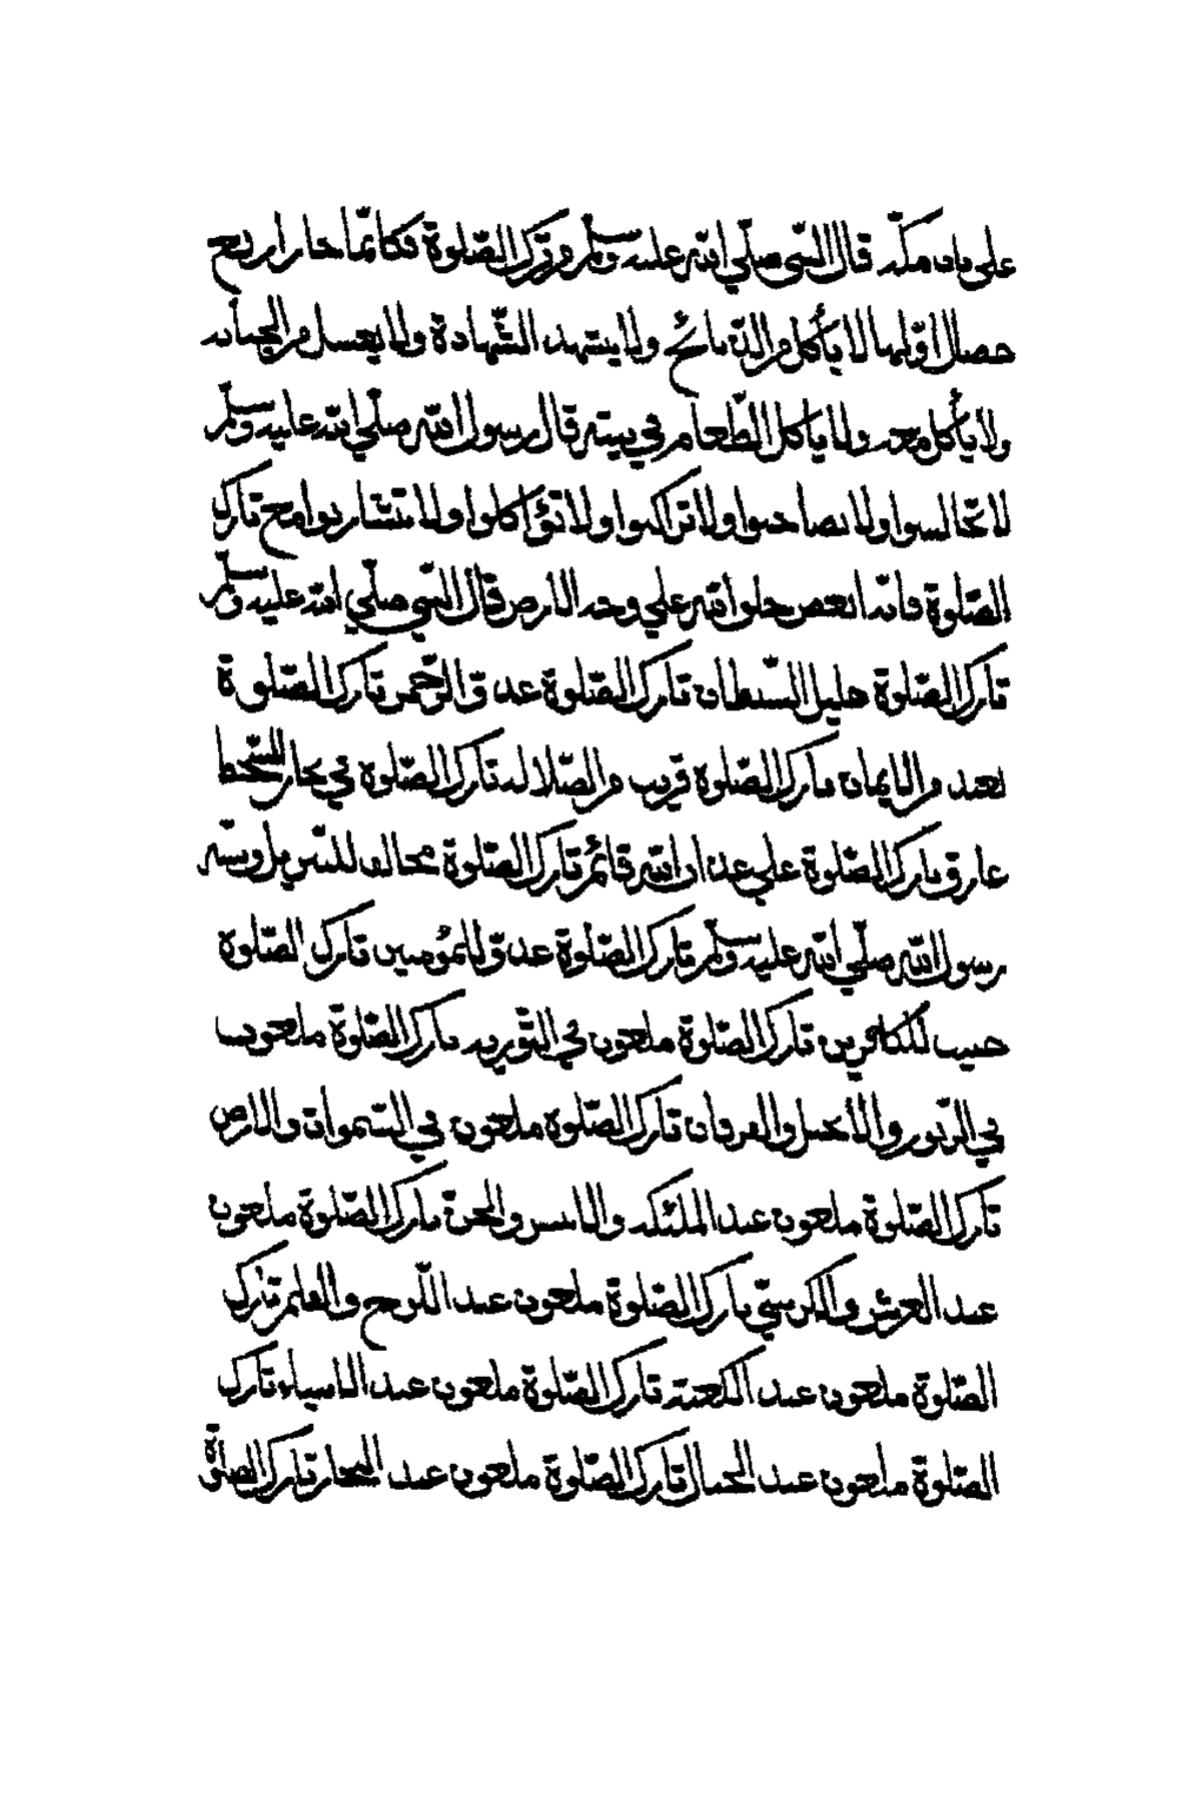 على باب مكة قال النبي صلي الله عليه وسلم من ترك الصلوة فكانما اختار اربع
خصال اولها لا يأكل من الذبائح ولا يشهد الشهادة ولا يغسل من الجنابة
ولا يأكل معه ولا ياكل الطعام في بيته قال رسول الله صلي الله عليه وسلم
لا تجالسوا ولا تصاحبوا ولا تراكبوا ولا تؤاكلوا ولا تتشاربوا مع تارك
الصلوة فانه ابغض خلق الله علي وجه الارض قال النبي صلي الله عليه وسلم
تارك الصلوة خليل الشيطان تارك الصلوة عدو الرحمن تارك الصلوة
بعيد من الايمان تارك الصلوة قريب من الضلالة تارك الصلوة في بحار السخط
غارق تارك الصلوة علي عذاب الله قائم تارك الصلوة مخالف للشريعة
رسول الله صلي الله عليه وسلم تارك الصلوة عدو للمؤمنين تارك الصلوة
حبيب للكافرين تارك الصلوة ملعون في التورية تارك الصلوة ملعون
في الزبور والانجيل والفرقان تارك الصلوة ملعون في السموات والارض
تارك الصلوة ملعون عند الملئكة والانس والجن تارك الصلوة ملعون
عند العرش والكرسي تارك الصلوة ملعون عند اللوح والقلم تارك
الصلوة ملعون عند الكعبة تارك الصلوة ملعون عند الانبياء تارك
الصلوة ملعون عند الجبال تارك الصلوة ملعون عند البحار تارك الصلوة